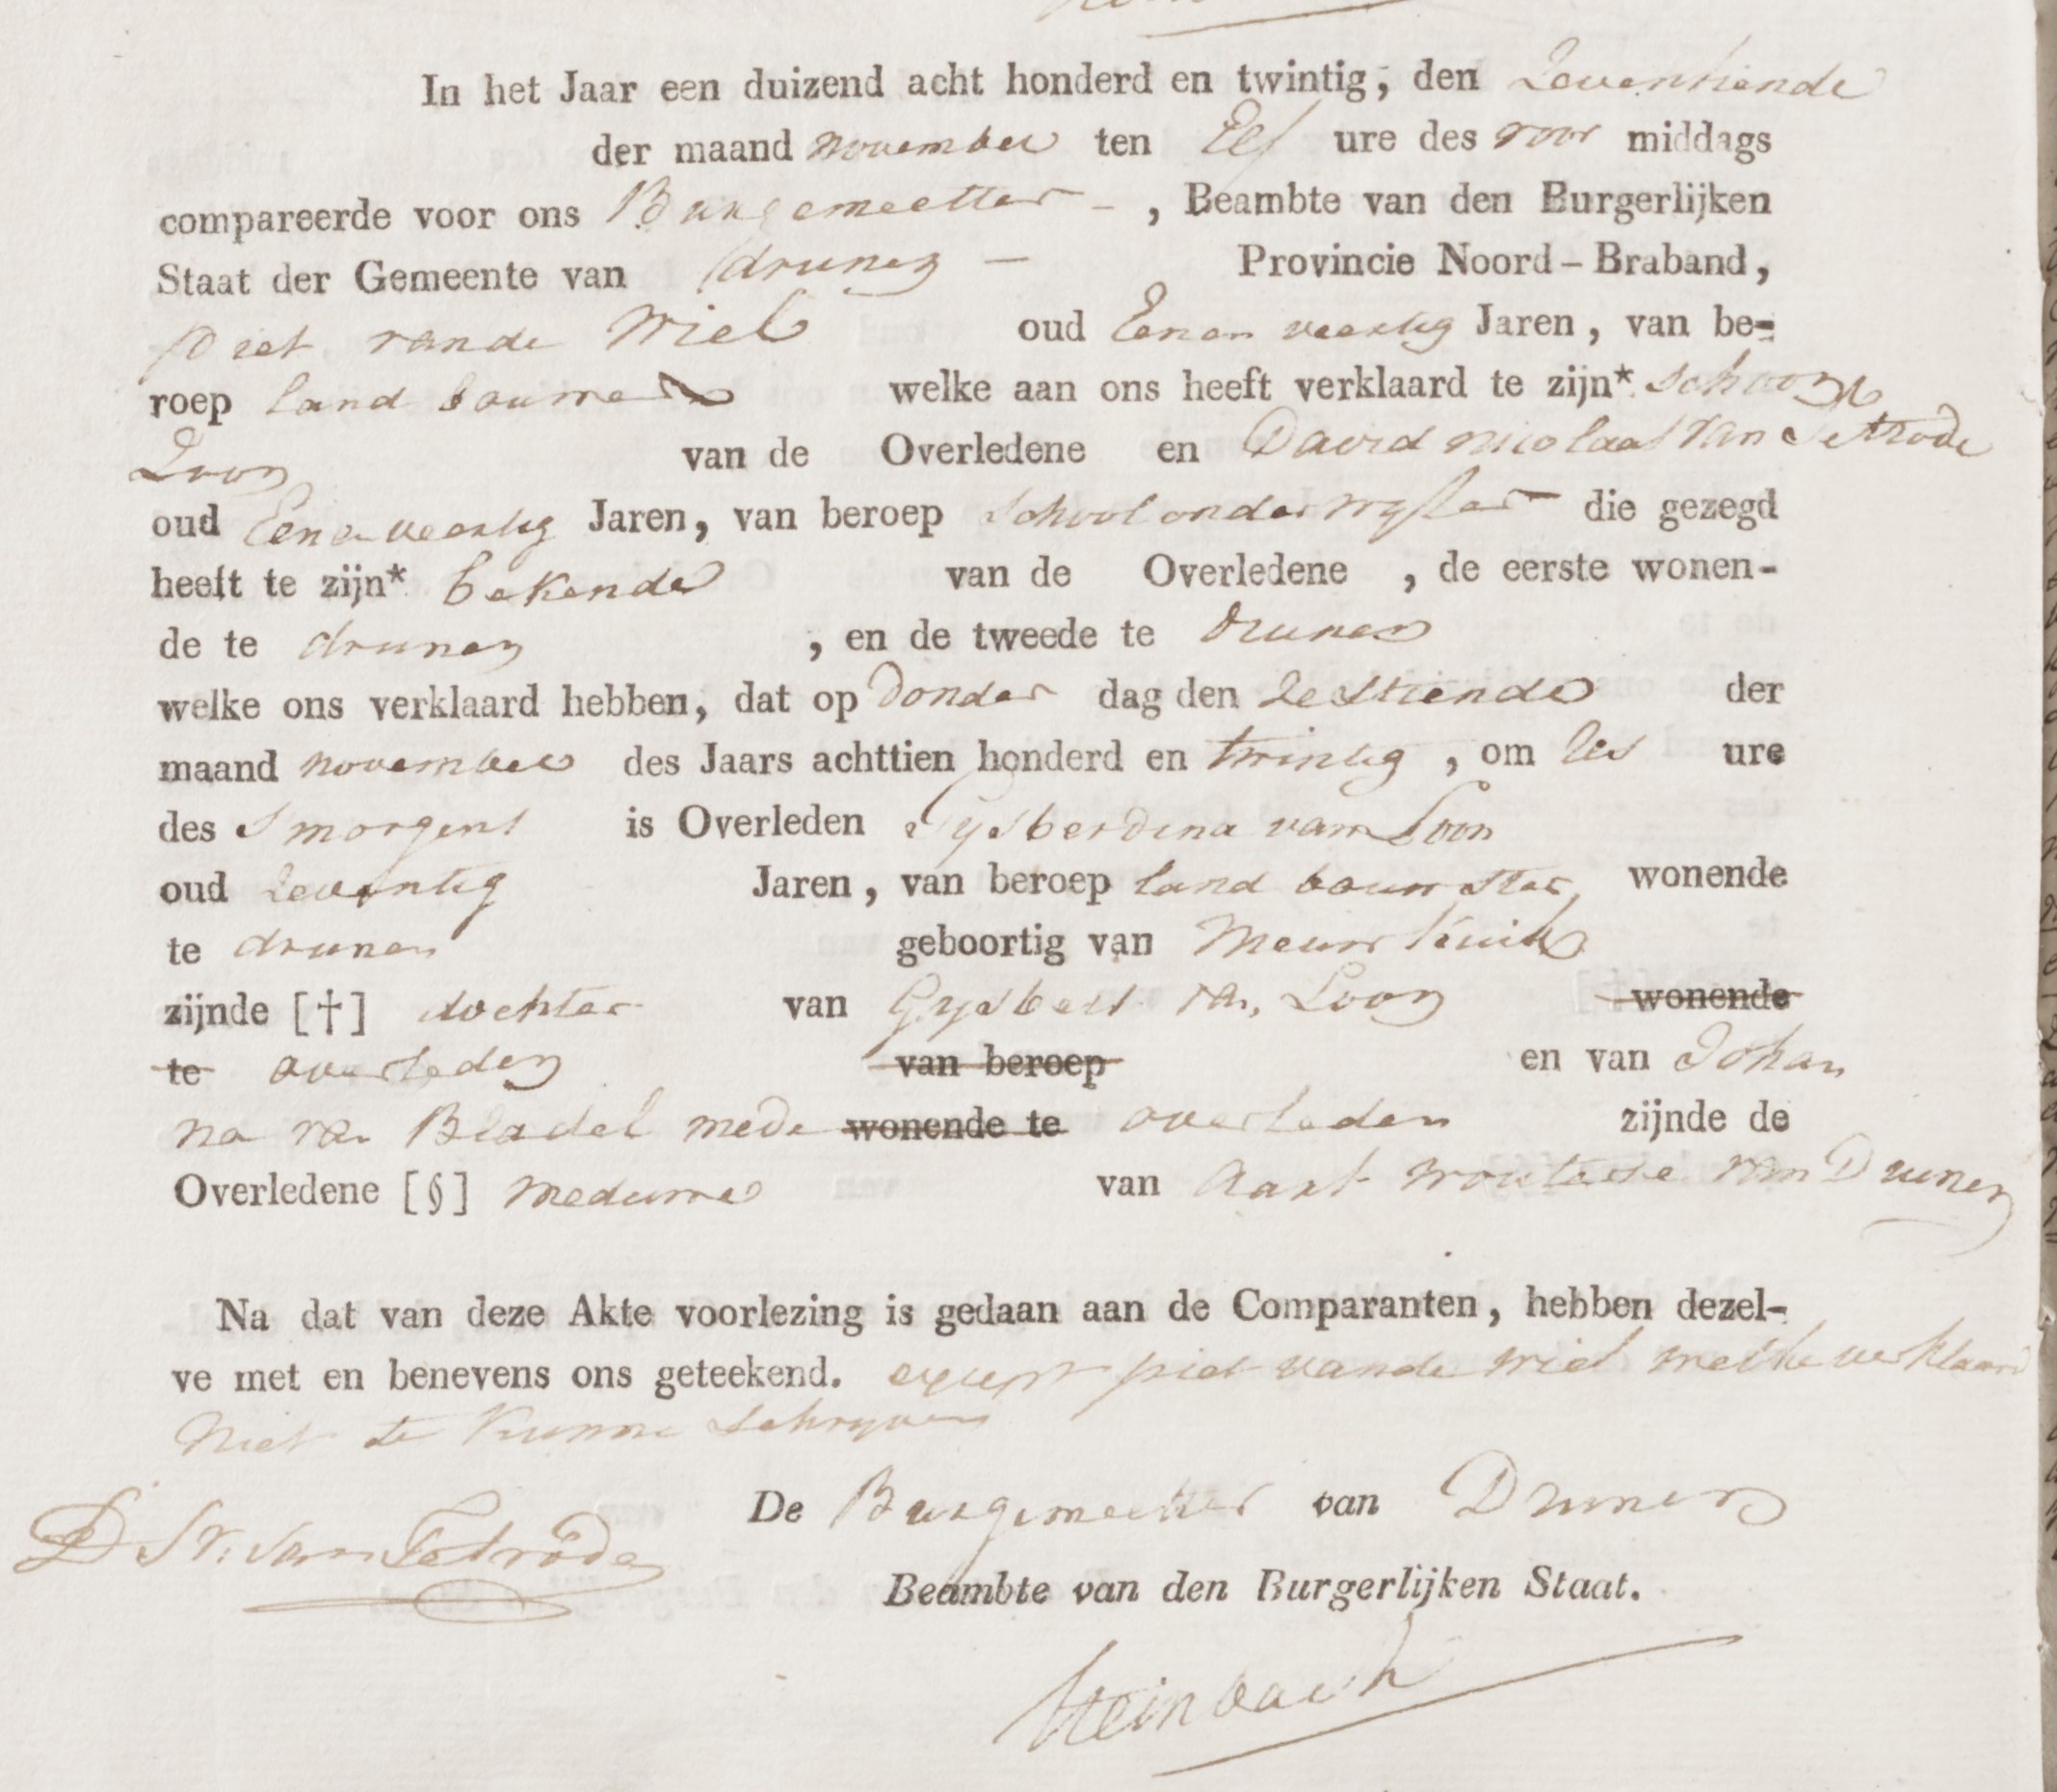 In het Jaar een duizend acht honderd en twintig, den Zeventiende
der maand november ten Elf ure des voor middags
compareerde voor ons Burgemeester - , Beambte van den Burgerlijken
Staat der Gemeente van drunen — Provincie Noord-Braband,
Piet vande Wiel oud Eenen veertig Jaren, van be-
roep land bouwer welke aan ons heeft verklaard te zijn* schoon
Zoon van de Overledene en David Nicolaas van Tetrode
oud Een en veertig Jaren, van beroep schoolonderwyser die gezegd
heeft te zijn* bekende van de Overledene , de eerste wonen-
de te drunen , en de tweede te drunen
welke ons verklaard hebben, dat op Donder dag den Zestiende der
maand november des Jaars achttien honderd en twintig , om Zes ure
des Smorgens is Overleden Gysberdina van Loon
oud Zeventig Jaren, van beroep land bouwster, wonende
te drunen geboortig van Meuwkuik
zijnde [†] dochter van Gysbert van Loon wonende
te overleden van beroep en van Johan
na van Bladel mede wonende te overleden zijnde de
Overledene [§] Meduwe van Aart Wouterse van Drunen
Na dat van deze Akte voorlezing is gedaan aan de Comparanten, hebben dezel-
ve met en benevens ons geteekend. except piet vande wiel welke verklaard
Niet te Kunne Schryven
De Burgemeester van Drunen
D N. van Tetrode
Beambte van den Burgerlijken Staat.
Steinbach